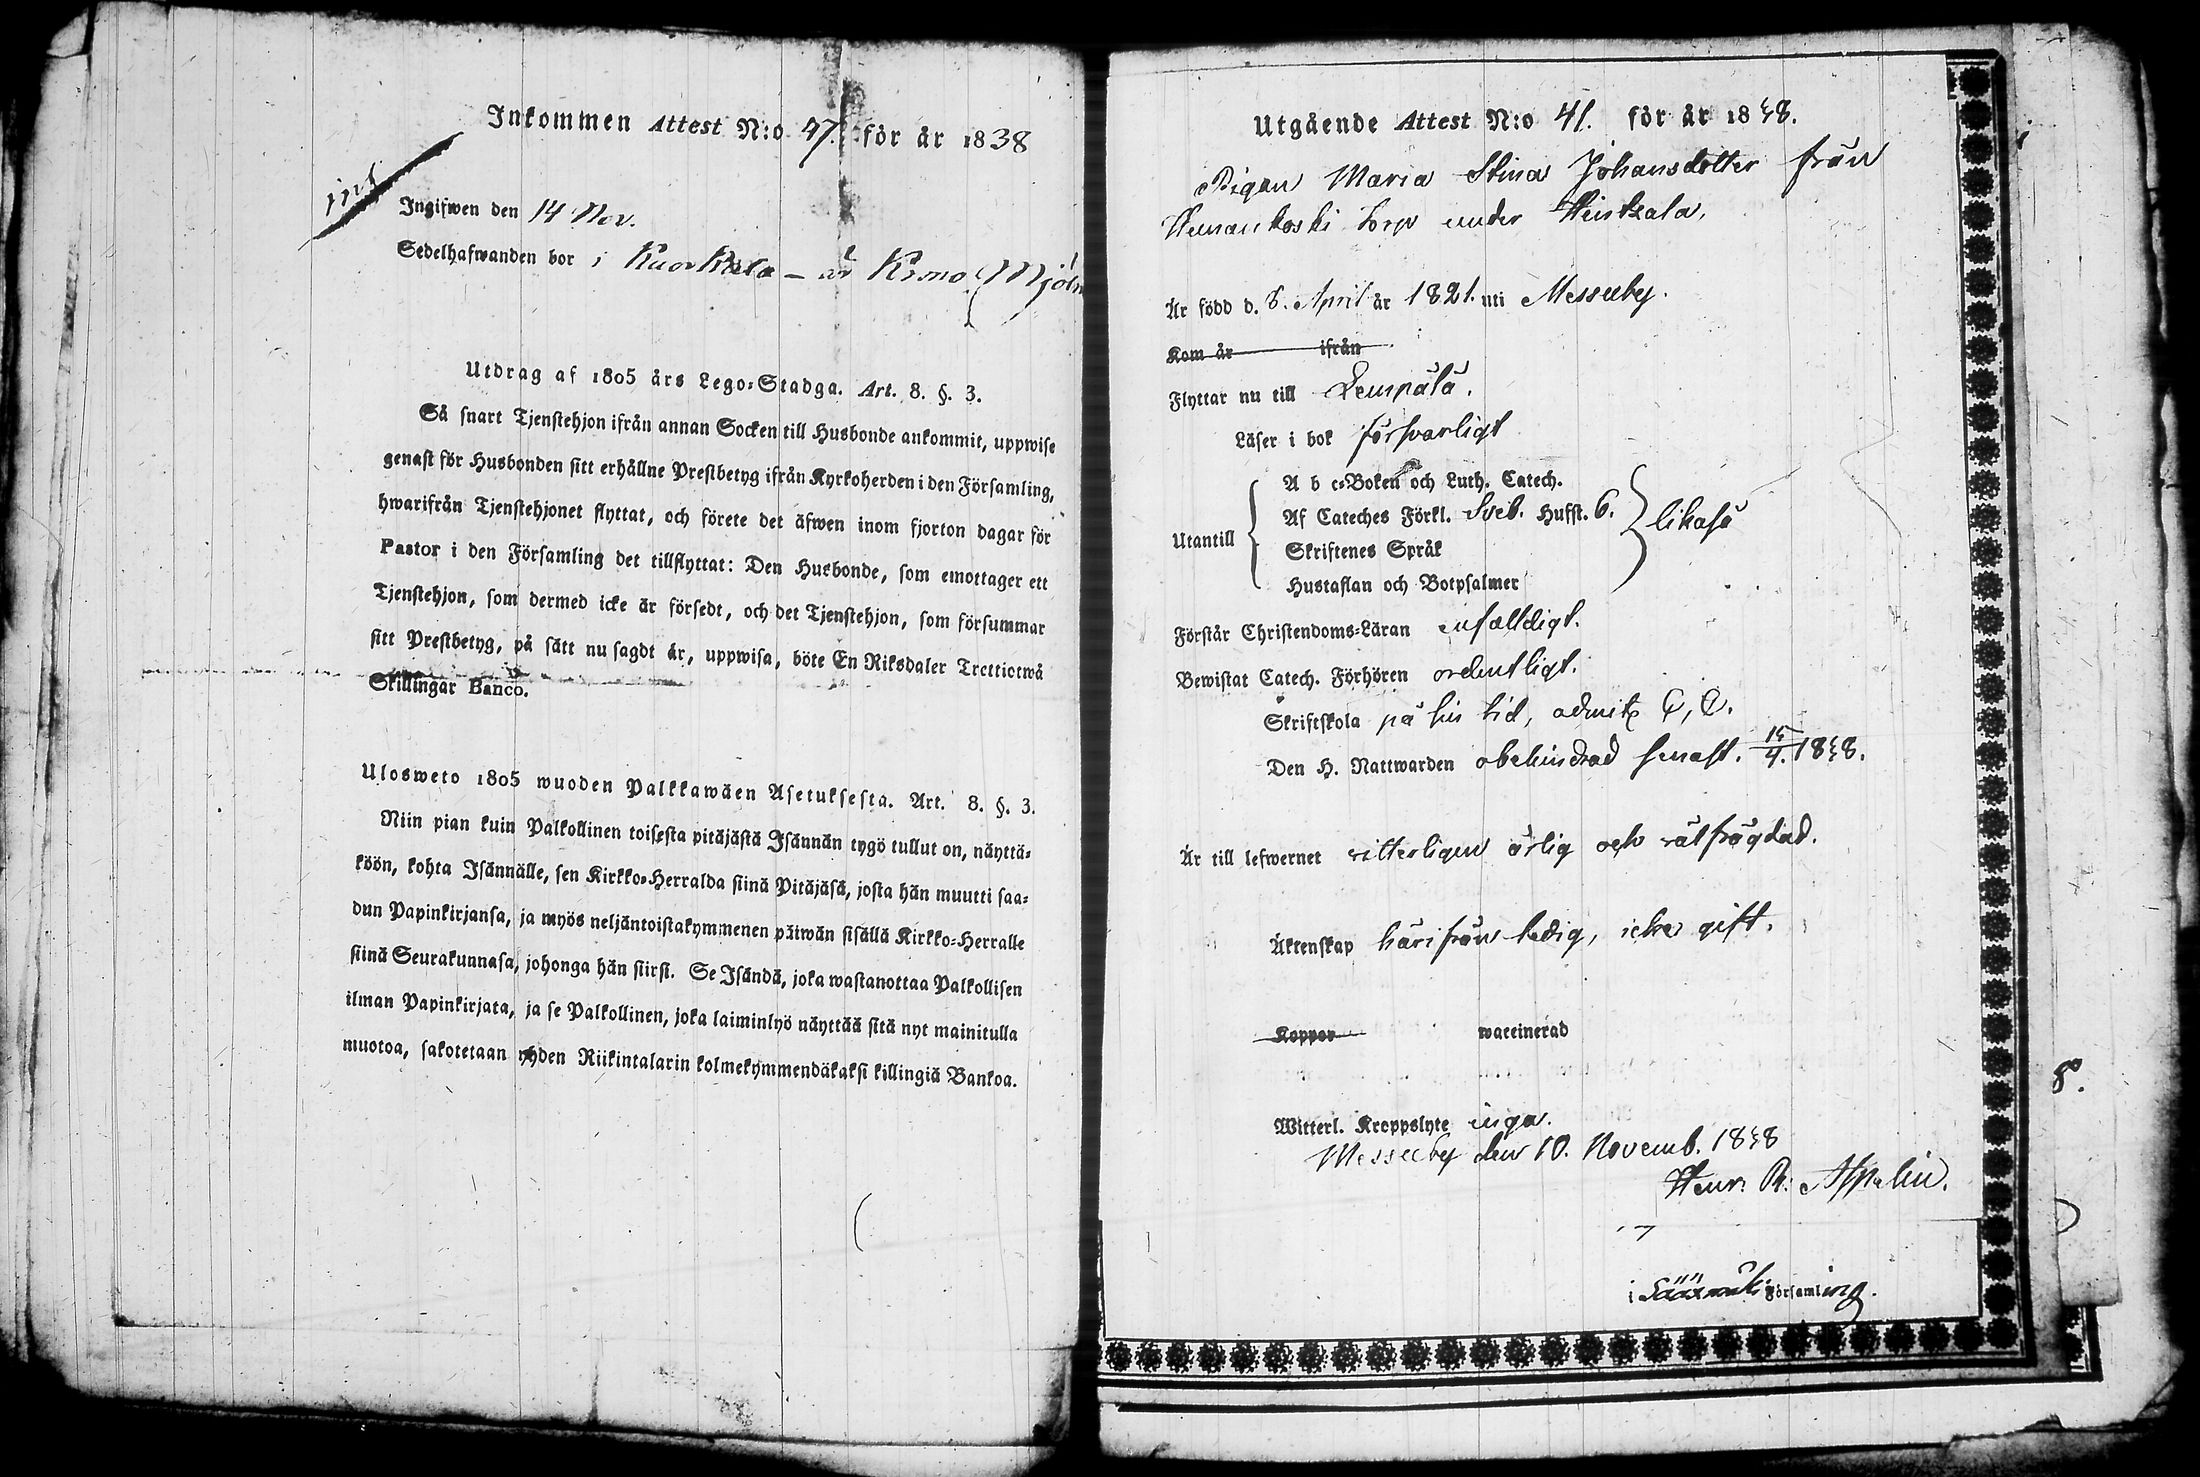 Inkommen Attest N:o 47. för år 1838
Ingifwen den 14 Nov.
Sedelhafwanden bor i Kuokkala
Utdrag af 1805 års Lego-Stadga. Art. 8. §. 3.
Så snart Tjenstehjon ifrån annan Socken till Husbonde ankommit, uppwise
genast för Husbonden sitt erhållne Prestbetyg ifrån Kyrkoherden i den Församling,
hwarifrån Tjenstehjonet flyttat, och förete det äfwen inom fjorton dagar för
Pastor i den Församling det tillflyttat: Den Husbonde, som emottager ett
Tjenstehjon, som dermed icke är försedt, och det Tjenstehjon, som försummar
sitt Prestbetyg, på sätt nu sagdt är, uppwisa, böte En Riksdaler Trettiotwå
Skillingar Banco.
Ulosweto 1805 wuoden Palkkawäen Asetuksesta. Art. 8. §. 3.
Niin pian kuin Palkollinen toisesta pitäjästä Isännän tygö tullut on, näyttä-
köön, kohta Isännälle, sen Kirkko-Herralda siinä Pitäjäsä, josta hän muutti saa-
dun Papinkirjansa, ja myös neljäntoistakymmenen päiwän sisällä Kirkko-Herralle
siinä Seurakunnasa, johonga hän siirsi. Se Isändä, joka wastanottaa Palkollisen
ilman Papinkirjata, ja se Palkollinen, joka laiminlyö näyttää sitä nyt mainitulla
muotoa, sakotetaan yhden Riikintalarin kolmekymmendäkaksi killingiä Bankoa.
Utgående Attest N:o 41. för år 1838.
Pigan Maria Stina Johansdotter från
torp under
Är född d. 8. April år 1821. uti Messuby.
Kom år ifrån
Flyttar nu till Lempälä.
Läser i bok försvarligt
A b c-Boken och Luth. Catech.
Af Cateches Förkl. Sveb. Hufst. 6.
Utantill likaså
Skriftenes Språk
Hustaflan och Botpsalmer
Förstår Christendoms-Läran enfalldigt.
Bewistat Catech. Förhören ordentligt.
Skriftskola på sin tid,
Den H. Nattwarden obehindrad senast. 15/4. 1838.
Är till lefwernet witterligen ärlig och välfrägdad.
Äktenskap härifrån ledig, icke gift.
Koppor waccinerad
Witterl. Kroppslyte inga.
Messuby den 10. Novemb. 1838
Henr. R. Appelin.
i Sääxmäki Församling.
8.